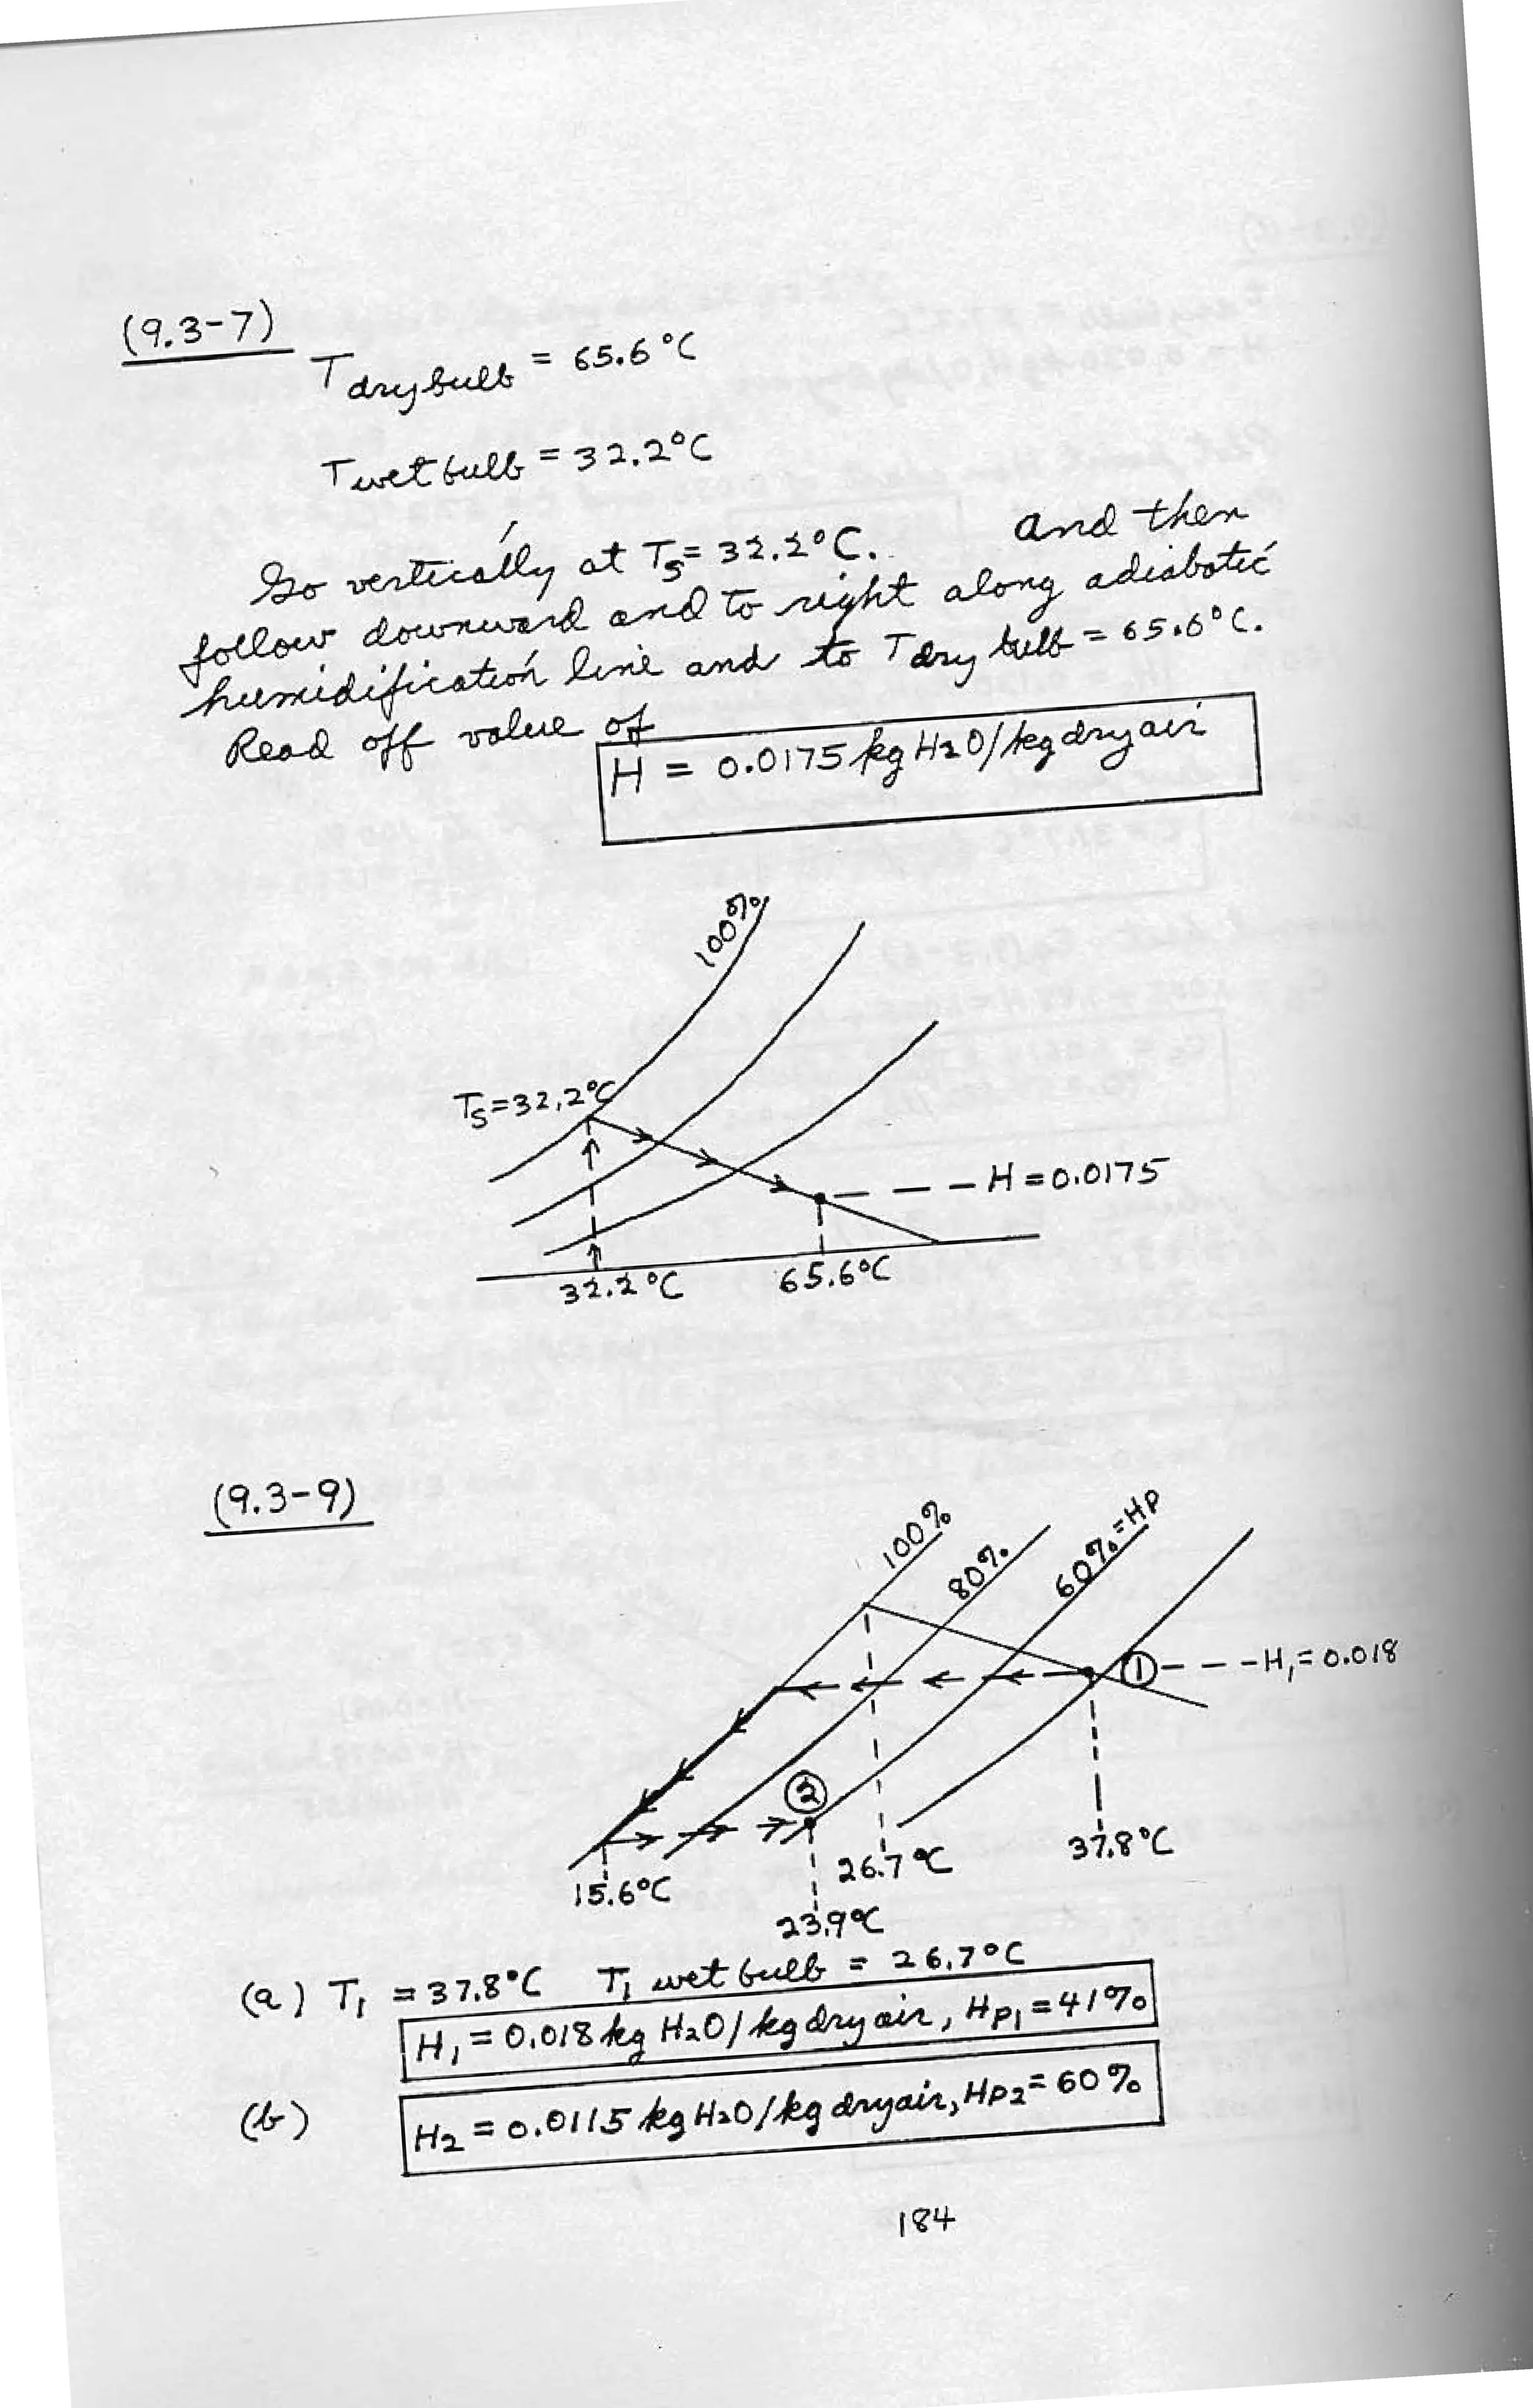 (9.3-7)
T dry bulb = 65.6 °C
T wet bulb = 32.2°C
Go vertically at Ts = 32.2°C. and then
follow downward and to right along adiabatic
humidification line and to T dry bulb = 65.6°C.
Read off value of
H = 0.0175 kg H2O/kg dry air
100%
Ts=32.2°C
H = 0.0175
32.2 °C
65.6°C
(9.3-9)
100%
80%
60% = HP
① H1 = 0.018
②
15.6°C
26.7 °C
37.8°C
23.9°C
(a) T1 = 37.8°C T1 wet bulb = 26.7°C
H1 = 0.018 kg H2O/kg dry air, HP1 = 41%
(b)
H2 = 0.0115 kg H2O/kg dry air, HP2 = 60%
184